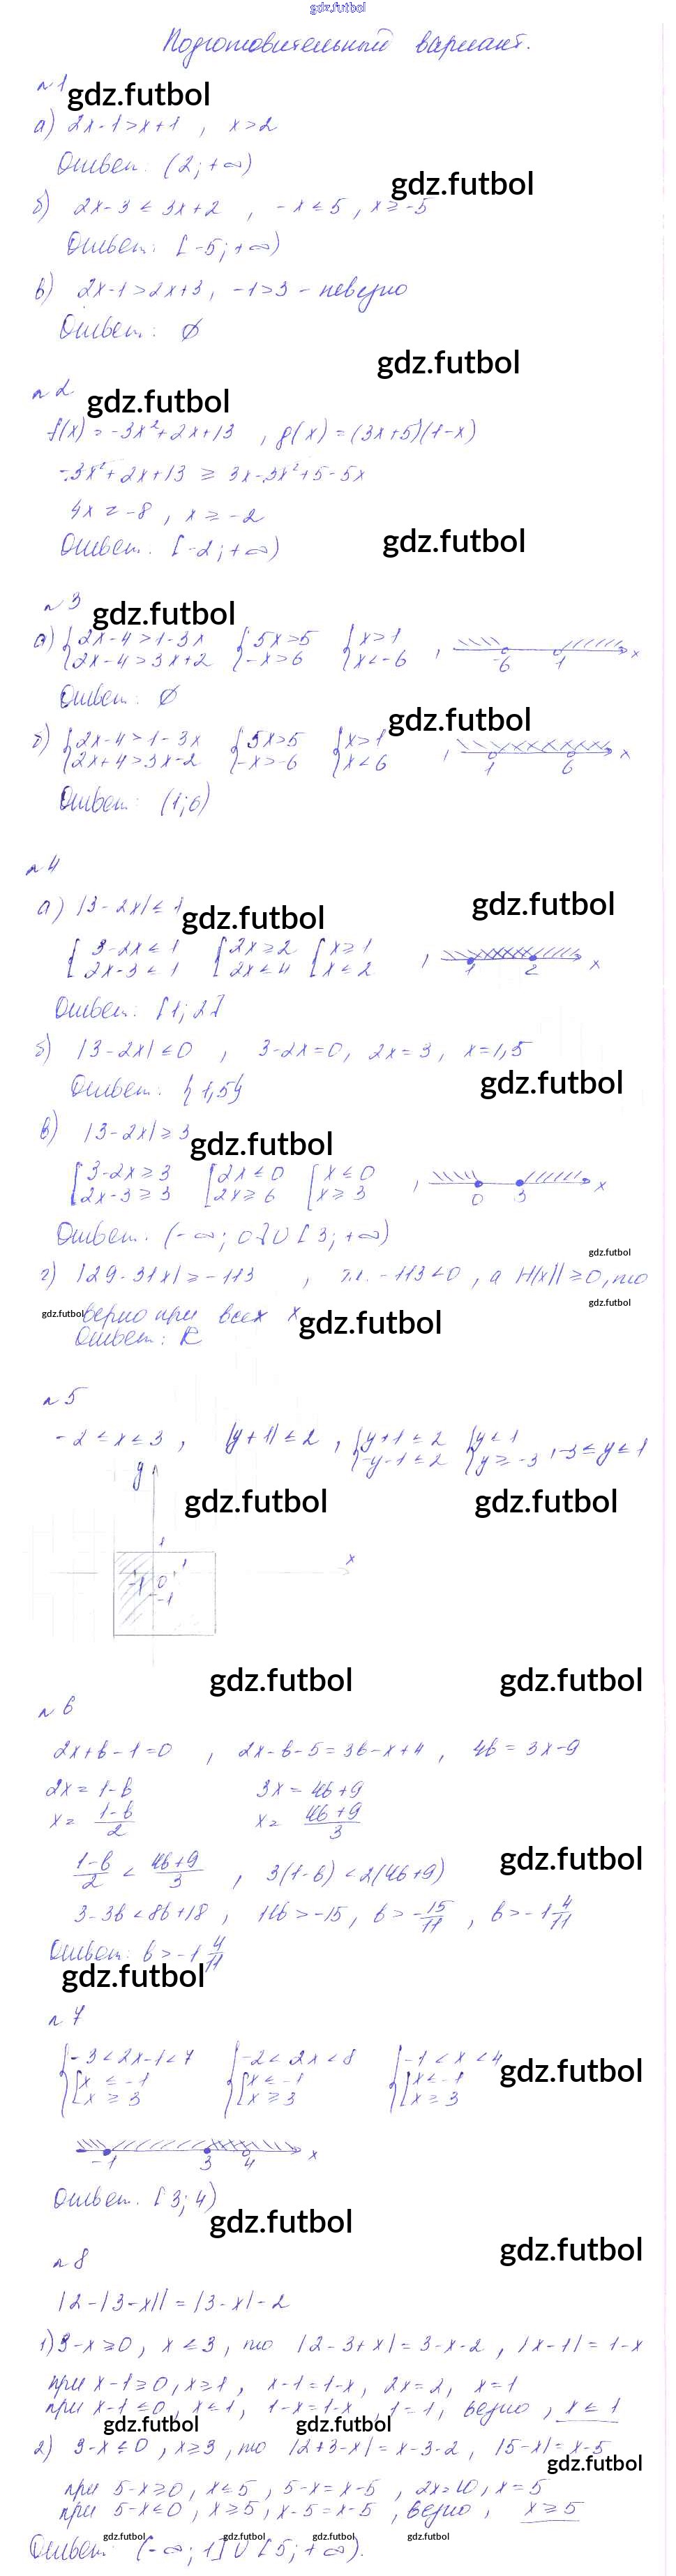 gdz.futbol
Подготовительный вариант.
n 1
gdz.futbol
а) 2x-1>x+1 , x>2
Ответ: (2;+∞)
gdz.futbol
б) 2x-3 ≤ 3x+2 , -x ≤ 5 , x ≥ -5
Ответ: [-5;+∞)
в) 2x-1>2x+3, -1>3 - неверно
Ответ: ∅
gdz.futbol
n 2
gdz.futbol
f(x) = -3x²+2x+13 , g(x) = (3x+5)(1-x)
-3x²+2x+13 ≥ 3x-3x²+5-5x
4x ≥ -8 , x ≥ -2
Ответ: [-2;+∞)
gdz.futbol
n 3
gdz.futbol
а) {2x-4>1-3x {5x>5 {x>1
{2x-4>3x+2 {-x>6 {x<-6 , -6 1 x
Ответ: ∅
gdz.futbol
б) {2x-4>1-3x {5x>5 {x>1
{2x+4>3x-2 {-x>-6 {x<6 , 1 6 x
Ответ: (1;6)
n 4
gdz.futbol
а) |3-2x| ≤ 1
gdz.futbol
{3-2x ≤ 1 {2x ≥ 2 {x ≥ 1
{2x-3 ≤ 1 {2x ≤ 4 {x ≤ 2 , 1 2 x
Ответ: [1;2]
б) |3-2x| ≤ 0 , 3-2x=0, 2x=3, x=1,5
gdz.futbol
Ответ: {1,5}
в) |3-2x| ≥ 3
gdz.futbol
[3-2x ≥ 3 [2x ≤ 0 [x ≤ 0
[2x-3 ≥ 3 [2x ≥ 6 [x ≥ 3 , 0 3 x
Ответ: (-∞;0]∪[3;+∞)
gdz.futbol
г) |29-31x| ≥ -113 , т.к. -113<0 , а |f(x)| ≥ 0, то
gdz.futbol
gdz.futbol
верно при всех x
gdz.futbol
Ответ: R
n 5
-2 ≤ x ≤ 3 , |y+1| ≤ 2 , {y+1 ≤ 2 {y ≤ 1
{-y-1 ≤ 2 {y ≥ -3 , -3 ≤ y ≤ 1
y
gdz.futbol gdz.futbol
1
x
-1 0 1
-1
gdz.futbol gdz.futbol
n 6
2x+b-1=0 , 2x-b-5=3b-x+4 , 4b=3x-9
2x=1-b 3x=4b+9
x= (1-b)/2 x= (4b+9)/3
gdz.futbol
(1-b)/2 < (4b+9)/3 , 3(1-b) < 2(4b+9)
3-3b<8b+18 , 11b>-15, b>-15/11 , b>-1 4/11
Ответ: b>-1 4/11
gdz.futbol
n 7
{-3<2x-1<7 {-2<2x<8 {-1<x<4
gdz.futbol
[x ≤ -1 [x ≤ -1 [x ≤ -1
[x ≥ 3 [x ≥ 3 [x ≥ 3
-1 3 4 x
Ответ. [3;4)
gdz.futbol
gdz.futbol
n 8
|2-|3-x|| = |3-x|-2
1) 3-x ≥ 0, x ≤ 3, то |2-3+x| = 3-x-2 , |x-1| = 1-x
при x-1 ≥ 0, x ≥ 1, x-1=1-x, 2x=2, x=1
при x-1 ≤ 0, x ≤ 1, 1-x=1-x, 1=1, верно, x ≤ 1
gdz.futbol gdz.futbol
2) 3-x ≤ 0, x ≥ 3, то |2+3-x| = x-3-2, |5-x| = x-5
gdz.futbol
при 5-x ≥ 0, x ≤ 5, 5-x=x-5 , 2x=10, x=5
при 5-x ≤ 0, x ≥ 5, x-5=x-5 , верно, x ≥ 5
gdz.futbol gdz.futbol gdz.futbol gdz.futbol
Ответ: (-∞;1]∪[5;+∞).